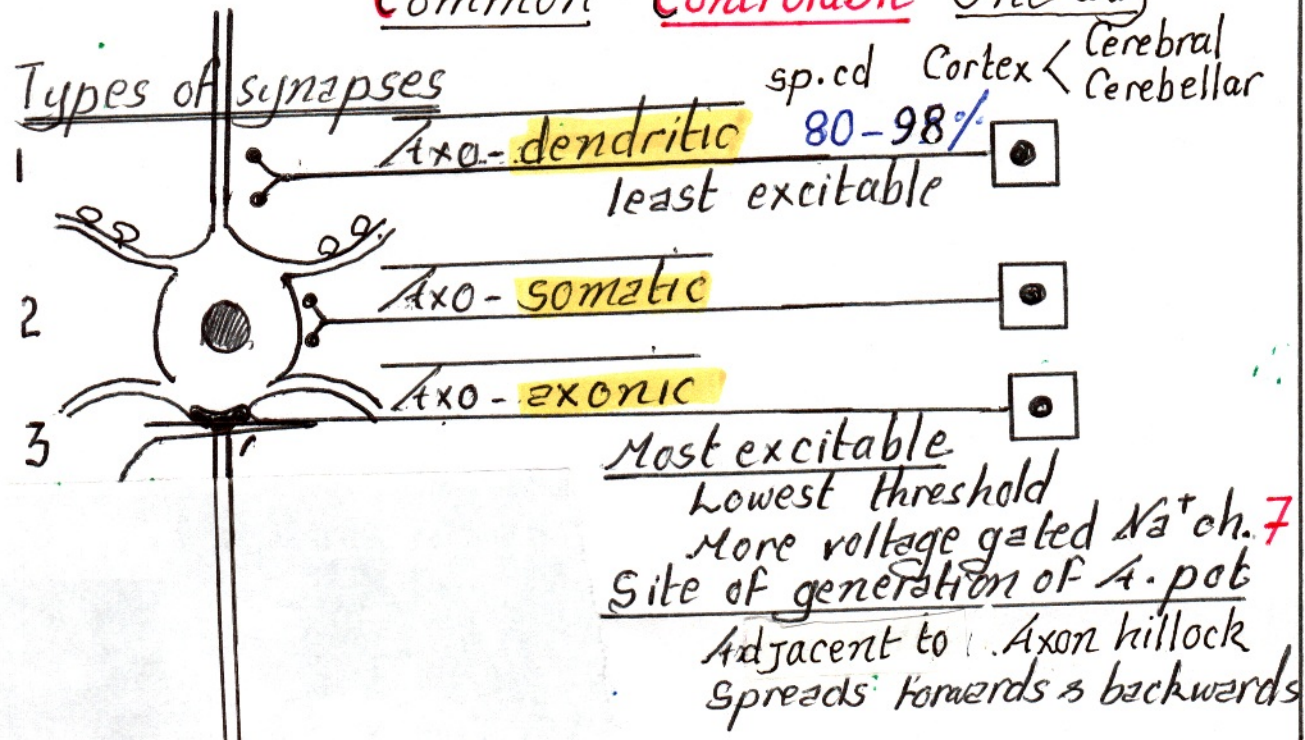 Common Controlable One way
Types of synapses
sp.cd Cortex < Cerebral
Cerebellar
1 Axo-dendritic 80-98%
least excitable
2 Axo-somatic
3 Axo-axonic
Most excitable
Lowest threshold
More voltage gated Na⁺ ch. 7
Site of generation of A.pot
Adjacent to Axon hillock
Spreads forwards & backwards